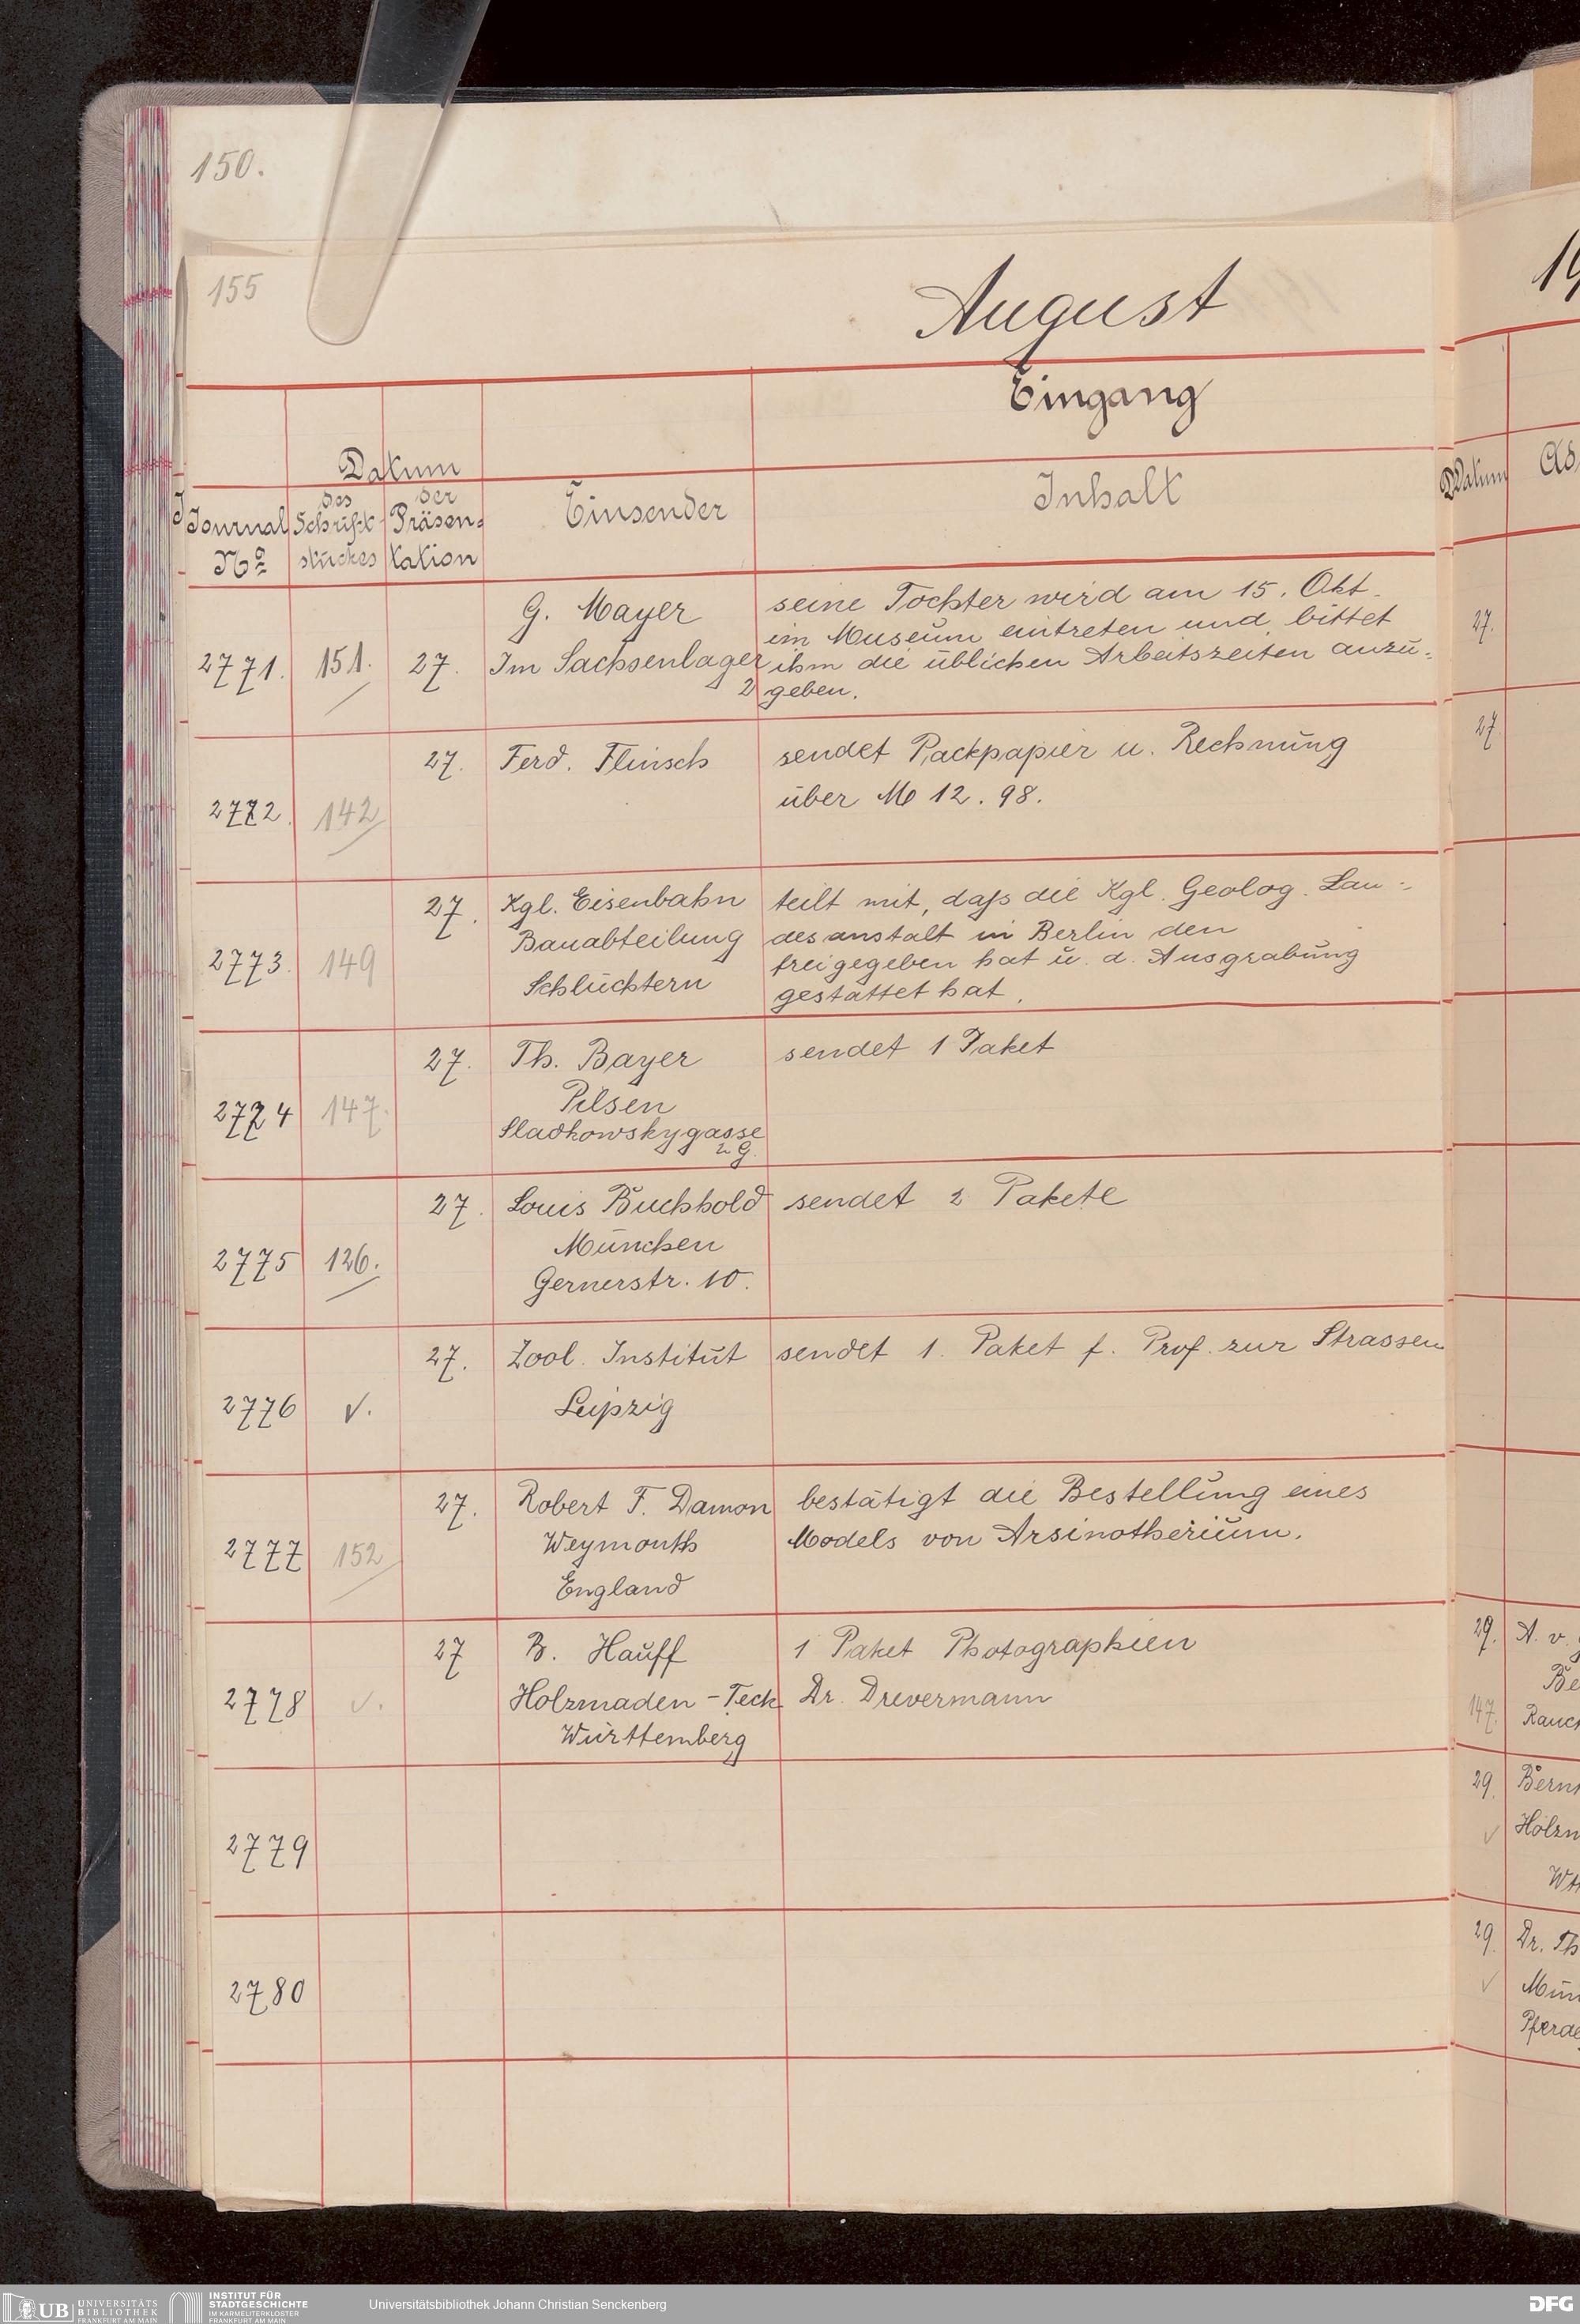 150.
155
August
19
Eingang
Datum
Journal
No
des
Schrift-
stückes
der
Präsen-
tation
Einsender
Inhalt
Datum
2771. 151. 27.
G. Mayer
Im Sachsenlager
2
seine Tochter wird am 15. Okt.
im Museum eintreten und bittet
ihm die üblichen Arbeitszeiten anzu-
geben.
27.
2772. 142 27.
Ferd. Flinsch
sendet Packpapier u. Rechnung
über M 12.98.
27.
2773. 149 27.
Kgl. Eisenbahn
Bauabteilung
Schlüchtern
teilt mit, daß die Kgl. Geolog. Lan-
desanstalt in Berlin den
freigegeben hat u. d. Ausgrabung
gestattet hat.
2774 147. 27.
Th. Bayer
Pilsen
Sladkowskygasse
sendet 1 Paket
2775 126. 27.
Louis Buchhold
München
Gernerstr. 10.
sendet 2 Pakete
2776 √. 27.
Zool. Institut
Leipzig
sendet 1. Paket f. Prof. zur Strassen
2777 152 27.
Robert F. Damon
Weymouth
England
bestätigt die Bestellung eines
Models von Arsinotherium.
2778 √. 27
B. Hauff
Holzmaden-Teck
Württemberg
1 Paket Photographien
Dr. Drevermann
29. A. v.
147.
2779
29.
√
2780
29. Dr. Th
√
UB UNIVERSITÄTS
BIBLIOTHEK
FRANKFURT AM MAIN
INSTITUT FÜR
STADTGESCHICHTE
IM KARMELITERKLOSTER
FRANKFURT AM MAIN
Universitätsbibliothek Johann Christian Senckenberg
DFG